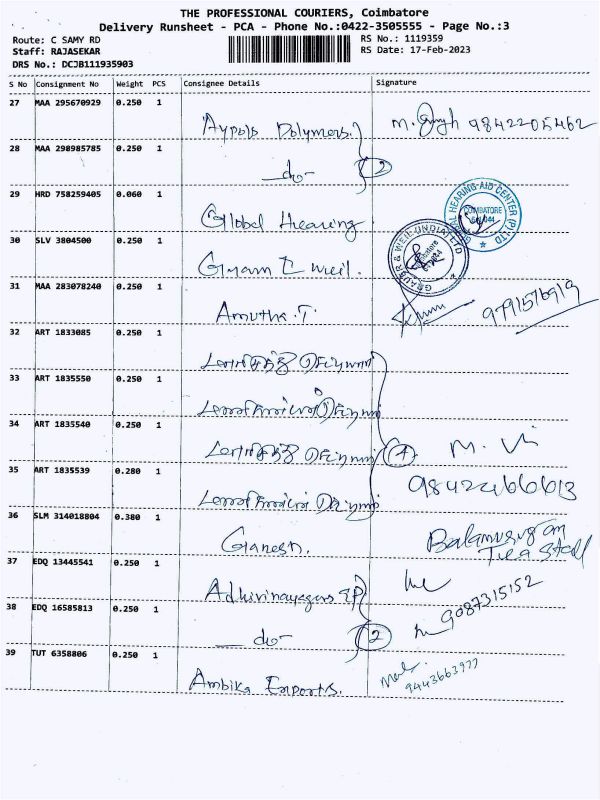 THE PROFESSIONAL COURIERS, Coimbatore
Delivery Runsheet - PCA - Phone No.:0422-3505555 - Page No.:3
Route: C SAMY RD RS No.: 1119359
Staff: RAJASEKAR RS Date: 17-Feb-2023
DRS No.: DCJB111935903
S No Consignment No Weight PCS Consignee Details Signature
27 MAA 295670929 0.250 1
Polymers. M. 9842205462
28 MAA 298985785 0.250 1
do- 2
29 HRD 758259405 0.060 1
Global Hearing
HEARING AID CENTER (P) LTD
COIMBATORE
30 SLV 3804500 0.250 1
Weil.
& WEIL (INDIA) LTD
31 MAA 283078240 0.250 1
Amutha.T 9791576919
32 ART 1833085 0.250 1
33 ART 1835550 0.250 1
34 ART 1835540 0.250 1
4 M.
35 ART 1835539 0.280 1
36 SLM 314018804 0.380 1
Ganesh. Balamurugan
Tea Stall
37 EDQ 13445541 0.250 1
38 EDQ 16585813 0.250 1
do- 2 9087315152
39 TUT 6358806 0.250 1
Ambika Exports. 9443663977